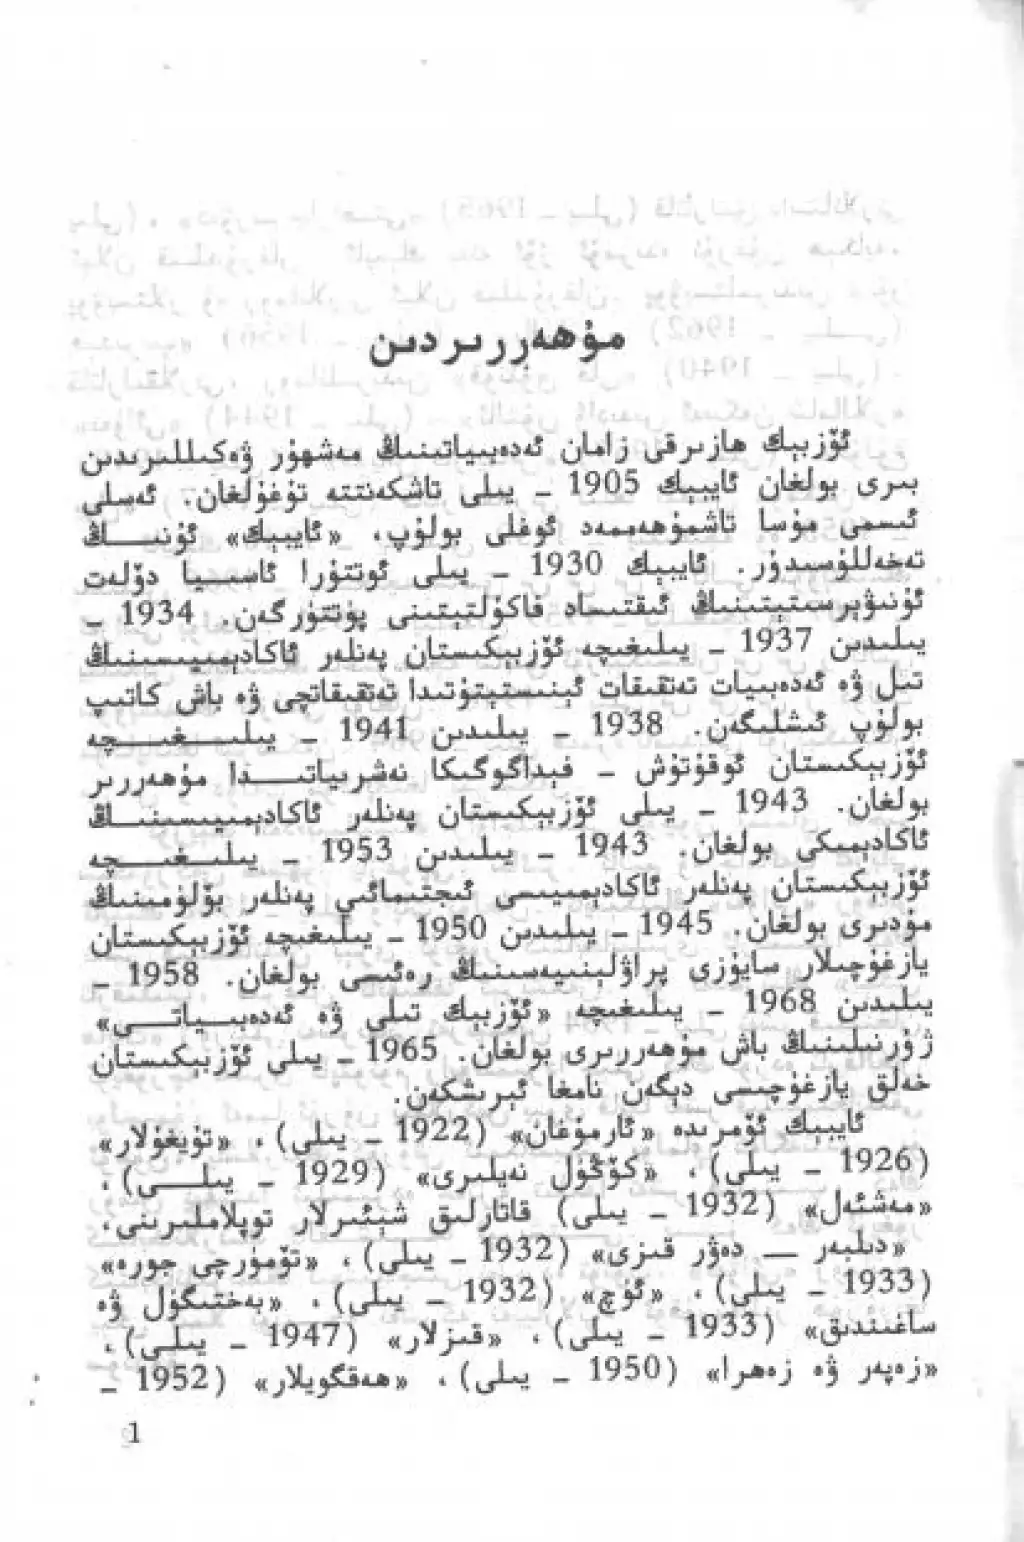 مۇھەررىردىن
ئۆزبېك ھازىرقى زامان ئەدەبىياتىنىڭ مەشھۇر ۋەكىللىرىدىن
بىرى بولغان ئايبېك 1905 – يىلى تاشكەنتتە تۇغۇلغان. ئەسلى
ئىسمى مۇسا تاشمۇھەممەد ئوغلى بولۇپ، «ئايبېك» ئۇنىــــڭ
تەخەللۇسىدۇر. ئايبېك 1930 – يىلى ئوتتۇرا ئاسىــيا دۆلەت
ئۇنىۋېرسىتېتىنىڭ ئىقتىساد فاكۇلتېتىنى پۈتتۈرگەن. 1934 –
يىلىدىن 1937 – يىلىغىچە ئۆزبېكىستان پەنلەر ئاكادېمىيىسىنىڭ
تىل ۋە ئەدەبىيات تەتقىقات ئىنىستىتۇتىدا تەتقىقاتچى ۋە باش كاتىپ
بولۇپ ئىشلىگەن. 1938 – يىلىدىن 1941 – يىلىــــغىــــچە
ئۆزبېكىستان ئوقۇتۇش – فېداگوگىكا نەشرىياتىــــدا مۇھەررىر
بولغان. 1943 – يىلى ئۆزبېكىستان پەنلەر ئاكادېمىيىسىنىــــڭ
ئاكادېمىكى بولغان. 1943 – يىلىدىن 1953 – يىلىــــغىــــچە
ئۆزبېكىستان پەنلەر ئاكادېمىيىسى ئىجتىمائىي پەنلەر بۆلۈمىنىڭ
مۇدىرى بولغان. 1945 – يىلىدىن 1950 – يىلىغىچە ئۆزبېكىستان
يازغۇچىلار سايۇزى پراۋلېنىيەسىنىڭ رەئىسى بولغان. 1958 –
يىلىدىن 1968 – يىلىغىچە «ئۆزبېك تىلى ۋە ئەدەبىــياتــى»
ژۇرنىلىنىڭ باش مۇھەررىرى بولغان. 1965 – يىلى ئۆزبېكىستان
خەلق يازغۇچىسى دېگەن نامغا ئېرىشكەن.
ئايبېك ئۆمرىدە «ئارمۇغان» (1922 – يىلى)، «تۇيغۇلار»
(1926 – يىلى)، «كۆڭۈل نەيلىرى» (1929 – يىلــــى)،
«مەشئەل» (1932 – يىلى) قاتارلىق شېئىرلار توپلاملىرىنى،
«دىلبەر — دەۋر قىزى» (1932 – يىلى)، «تۆمۈرچى جورە»
(1933 – يىلى)، «ئۆچ» (1932 – يىلى)، «بەختىگۈل ۋە
ساغىندىق» (1933 – يىلى)، «قىزلار» (1947 – يىلى)،
«زەپەر ۋە زەھرا» (1950 – يىلى)، «ھەقگويلار» (1952 –
1